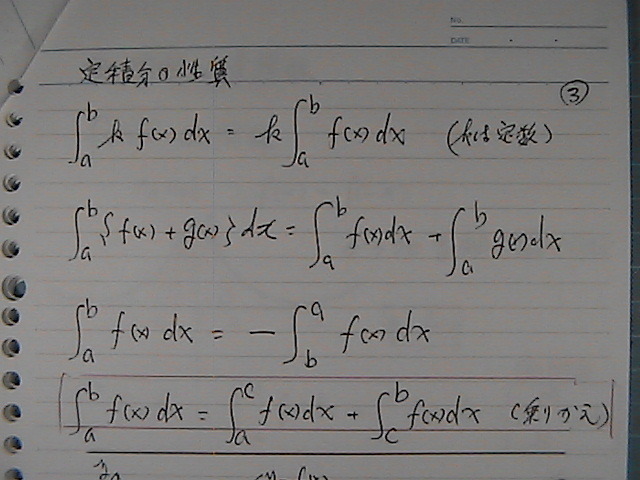 No.
DATE
定積分の性質
③
∫_a^b k f(x) dx = k ∫_a^b f(x) dx (kは定数)
∫_a^b { f(x) + g(x) } dx = ∫_a^b f(x) dx + ∫_a^b g(x) dx
∫_a^b f(x) dx = - ∫_b^a f(x) dx
∫_a^b f(x) dx = ∫_a^c f(x) dx + ∫_c^b f(x) dx (乗りかえ)